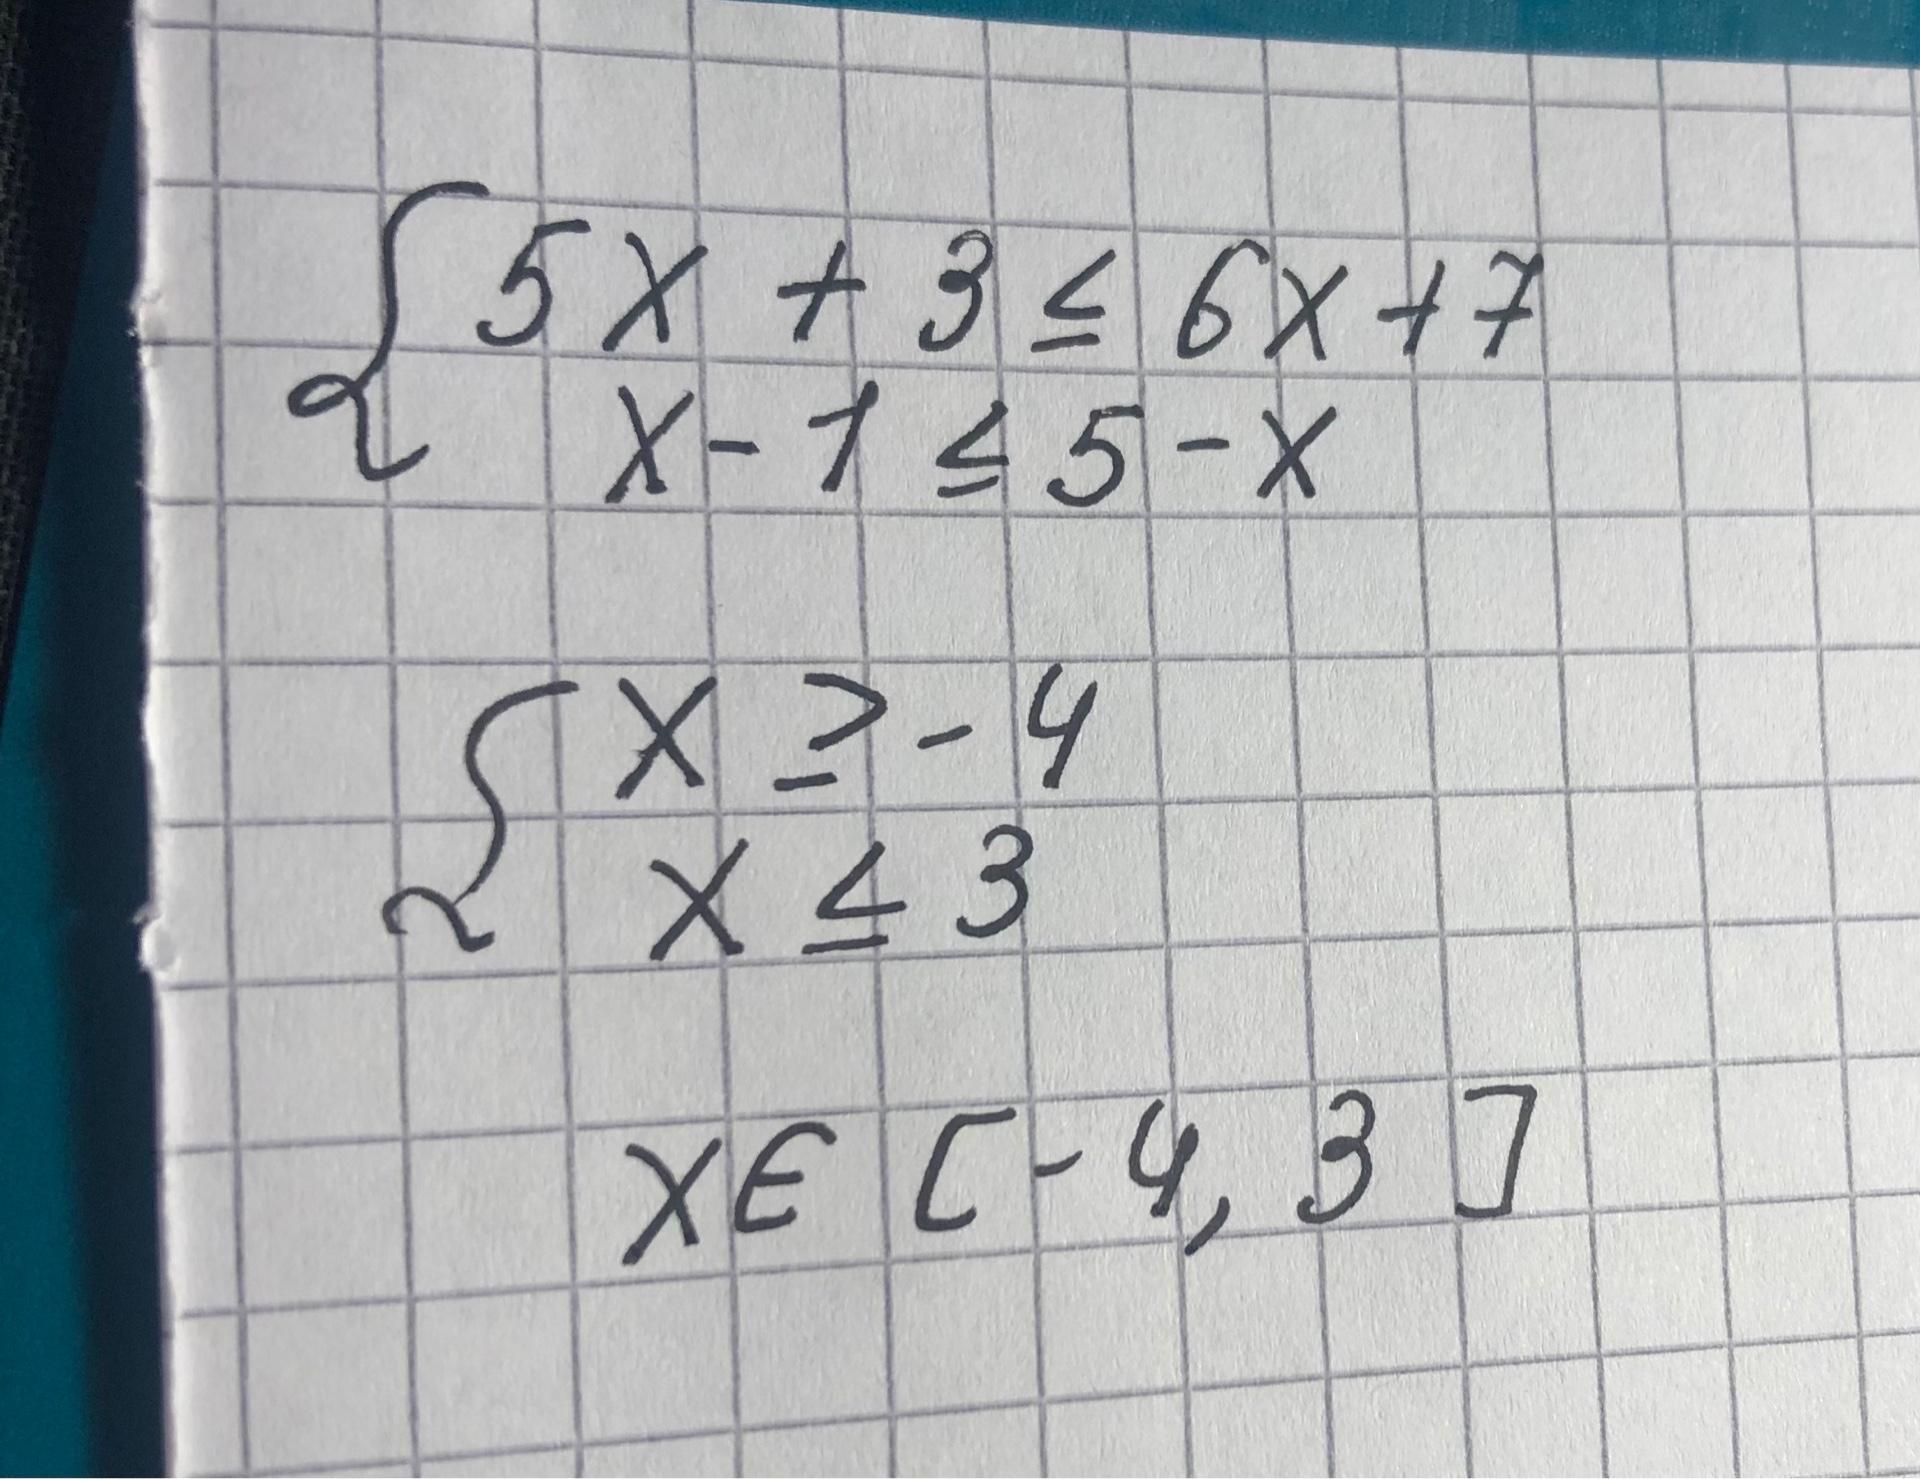 { 5x + 3 ≤ 6x + 7
x - 1 ≤ 5 - x
{ x ≥ - 4
x ≤ 3
x ∈ [-4, 3]